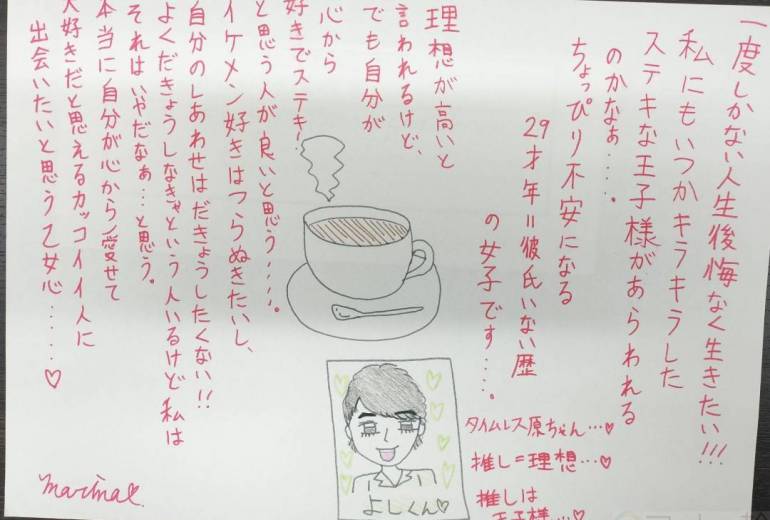 一度しかない人生後悔なく生きたい!!!
私にもいつかキラキラした
ステキな王子様があらわれる
のかなぁ・・・・。
ちょっぴり不安になる
29才年=彼氏いない歴
の女子です・・・・。
理想が高いと
言われるけど、
でも自分が
心から
好きでステキ!
と思う人が良いと思う・・・・。
イケメン好きはつらぬきたいし、
自分のしあわせはだきょうしたくない!!
よくだきょうしなきゃという人いるけど私は
それはいやだなぁ…と思う。
本当に自分が心から愛せて
大好きだと思えるカッコイイ人に
出会いたいと思う乙女心……♡
よしくん♡
タイムレス原ちゃん…♡
推し=理想…♡
推しは
王子様…♡
marina.